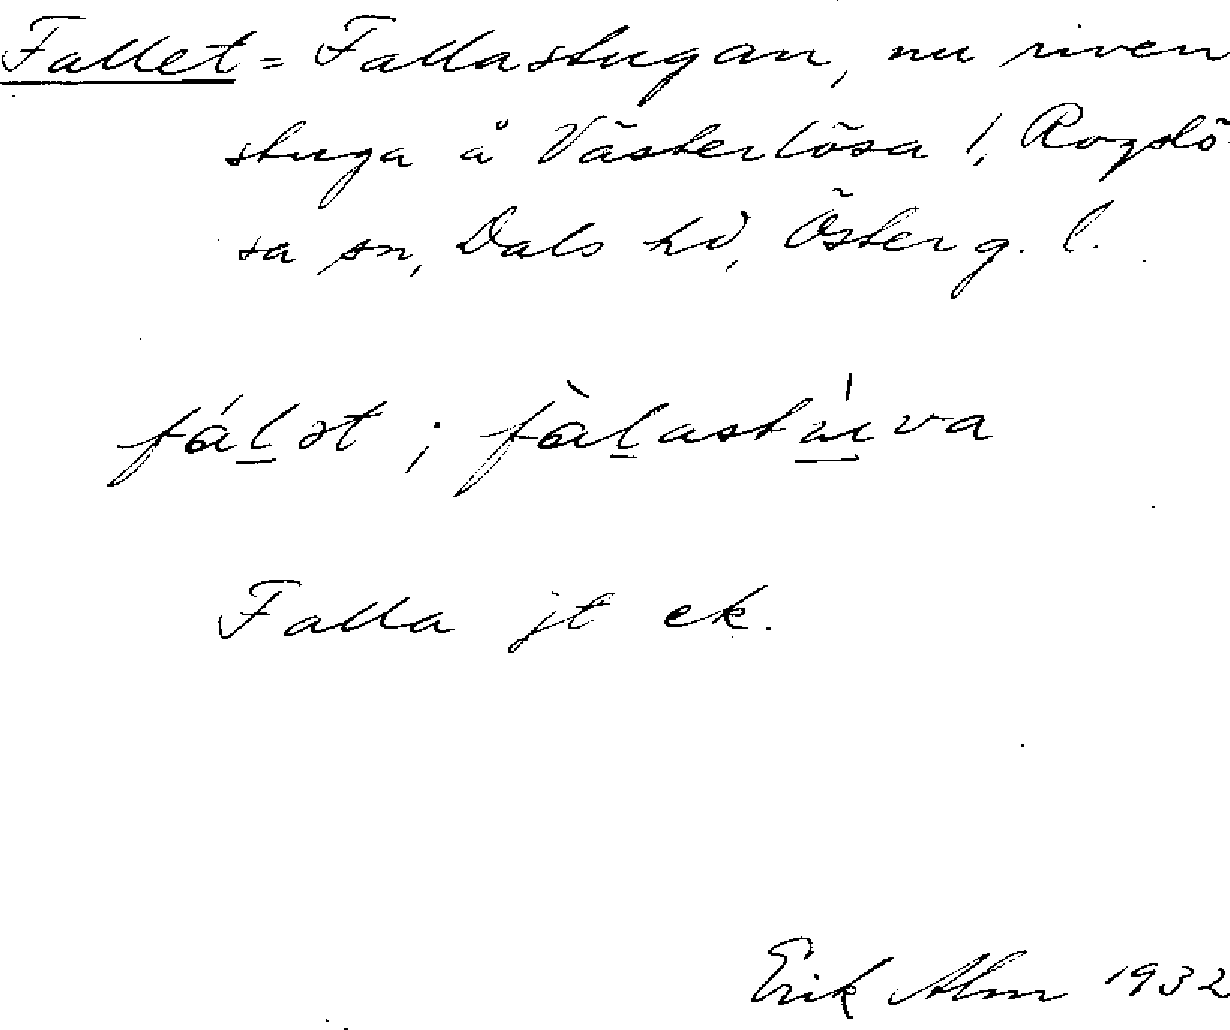 Fallet = Fallastugan, nu riven
stuga å Västerlösa 1, Rogslö-
sa sn, Dals hd, Österg. l.
fáḻət ; fàḻastu̲va
Falla jt ek.
Erik Alm 1932